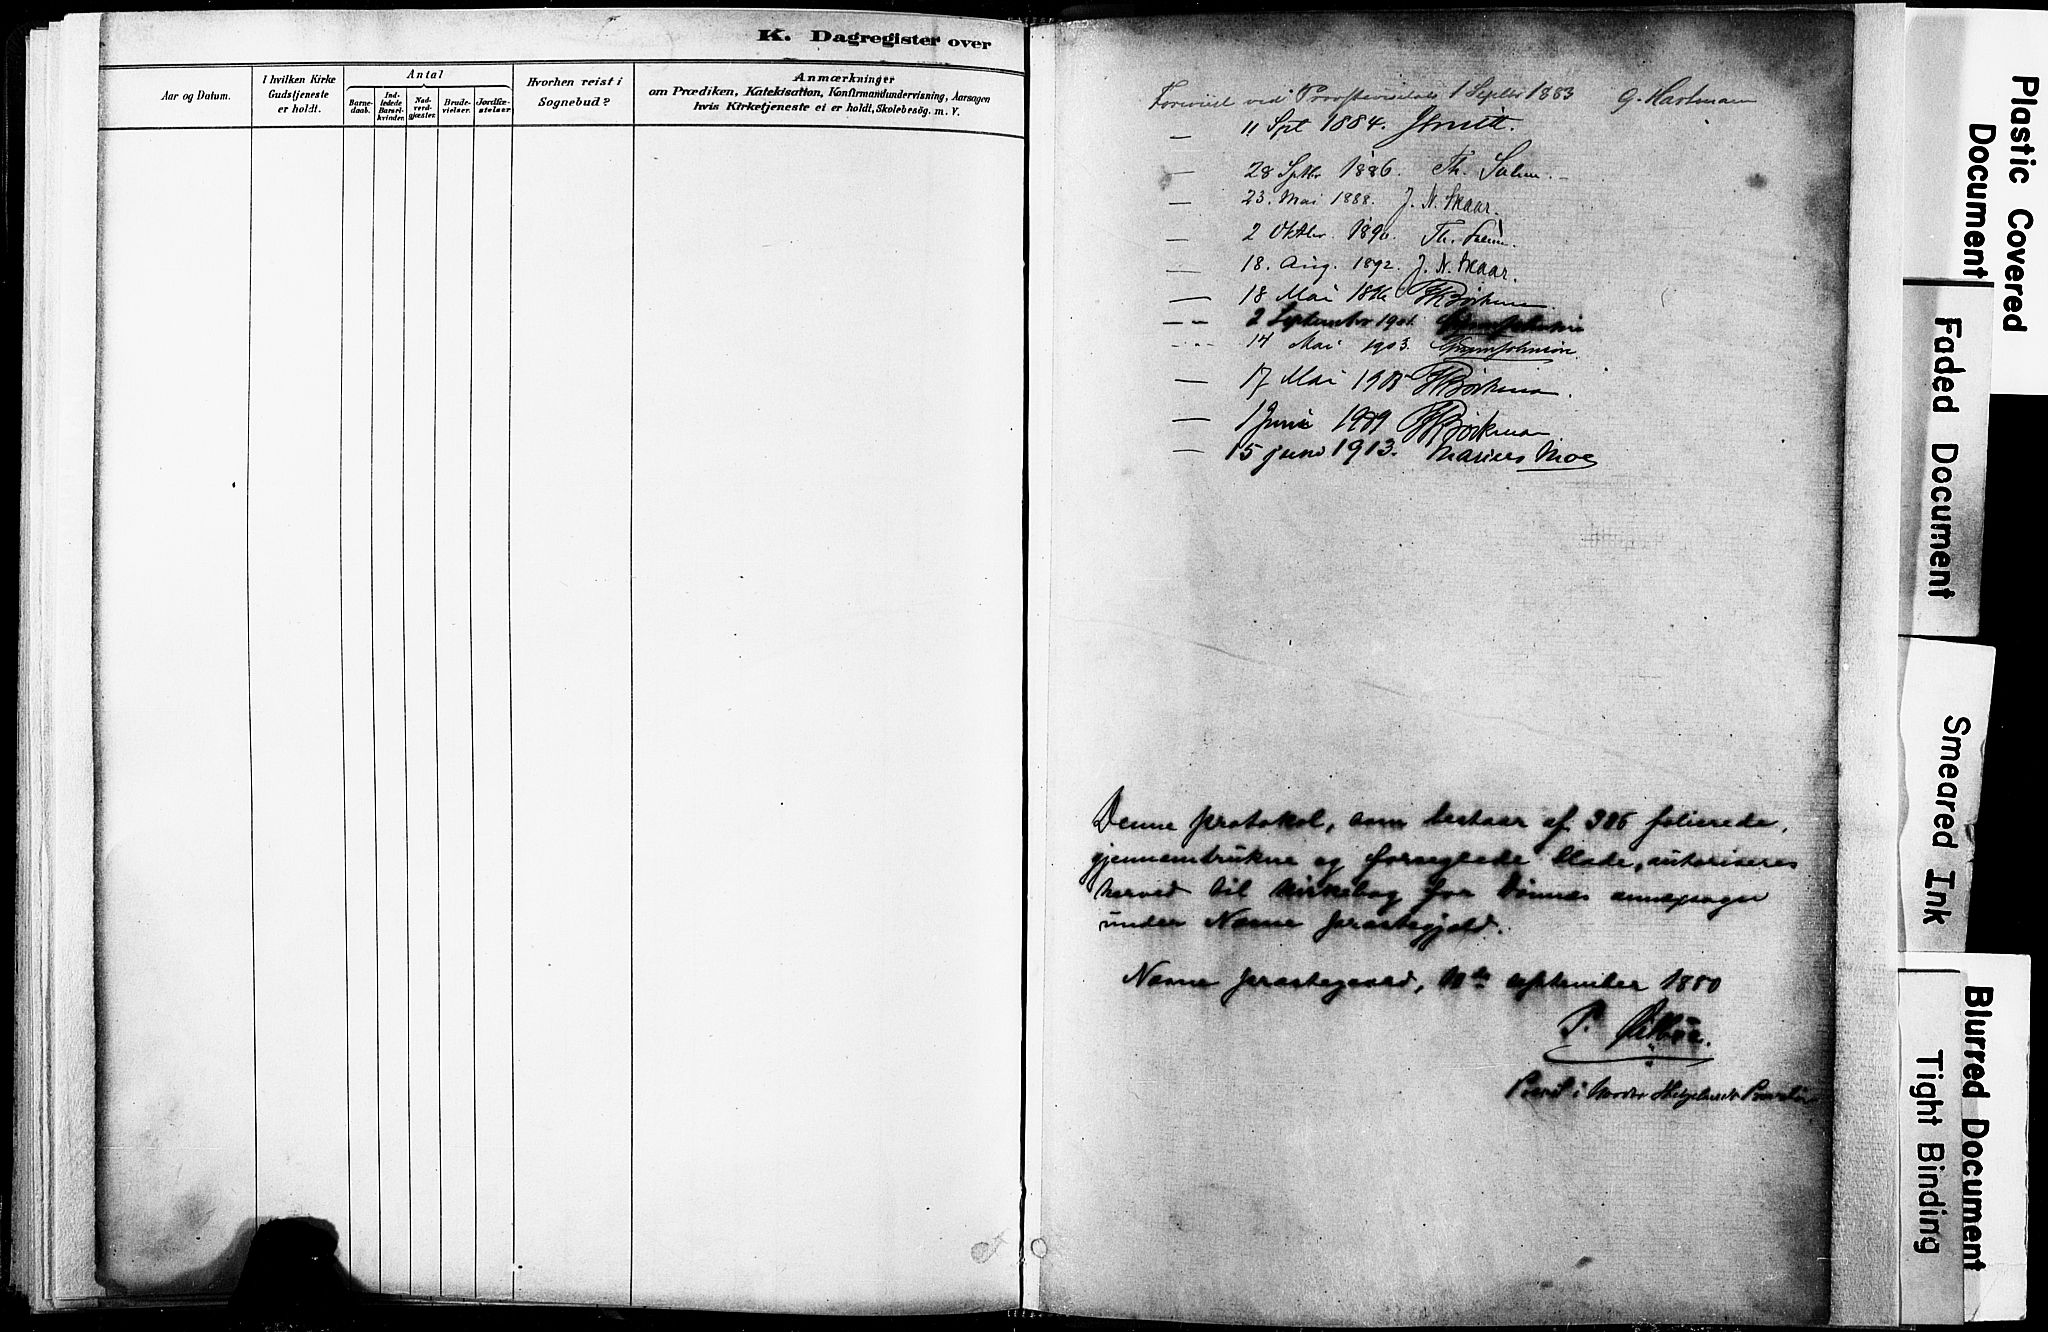 K. Dagregister over
Aar og Datum.
I hvilken Kirke
Gudstjeneste
er holdt.
Antal
Barne-
daab.
Ind-
ledede
Barsel-
kvinder.
Nad-
verd-
gjæster.
Brude-
vielser.
Jordfæ-
stelser.
Hvorhen reist i
Sognebud?
Anmærkninger
om Prædiken, Katekisation, Konfirmandundervisning, Aarsagen
hvis Kirketjeneste ei er holdt, Skolebesög. m. V.
Forevist ved Provstevisitats 1 Septbr 1883 G. Hartmann
— 11 Spt 1884.
— 28 Sptbr 1886. Th.
— 23. Mai 1888. J. N. Skaar.
— 2 Oktbr. 1890. Th.
— 18. Aug. 1892. J. N. Skaar.
— 18 Mai
— — 2 September 1901.
14 Mai 1903.
— 17 Mai
— 1 Juni 1909
— 15 juni 1913. Marius Moe
Denne protokol, som bestaar af 306 folierede,
gjennemtrukne og forseglede blade, autoriseres
herved til kirkebog for Dønnes annexsogn
under Nesne præstegjeld.
Nesne præstegaard, september 1880
P.
Provst i Nordre Helgelands Provsti
Plastic Covered
Document
Faded Document
Smeared Ink
Blurred Document
Tight Binding